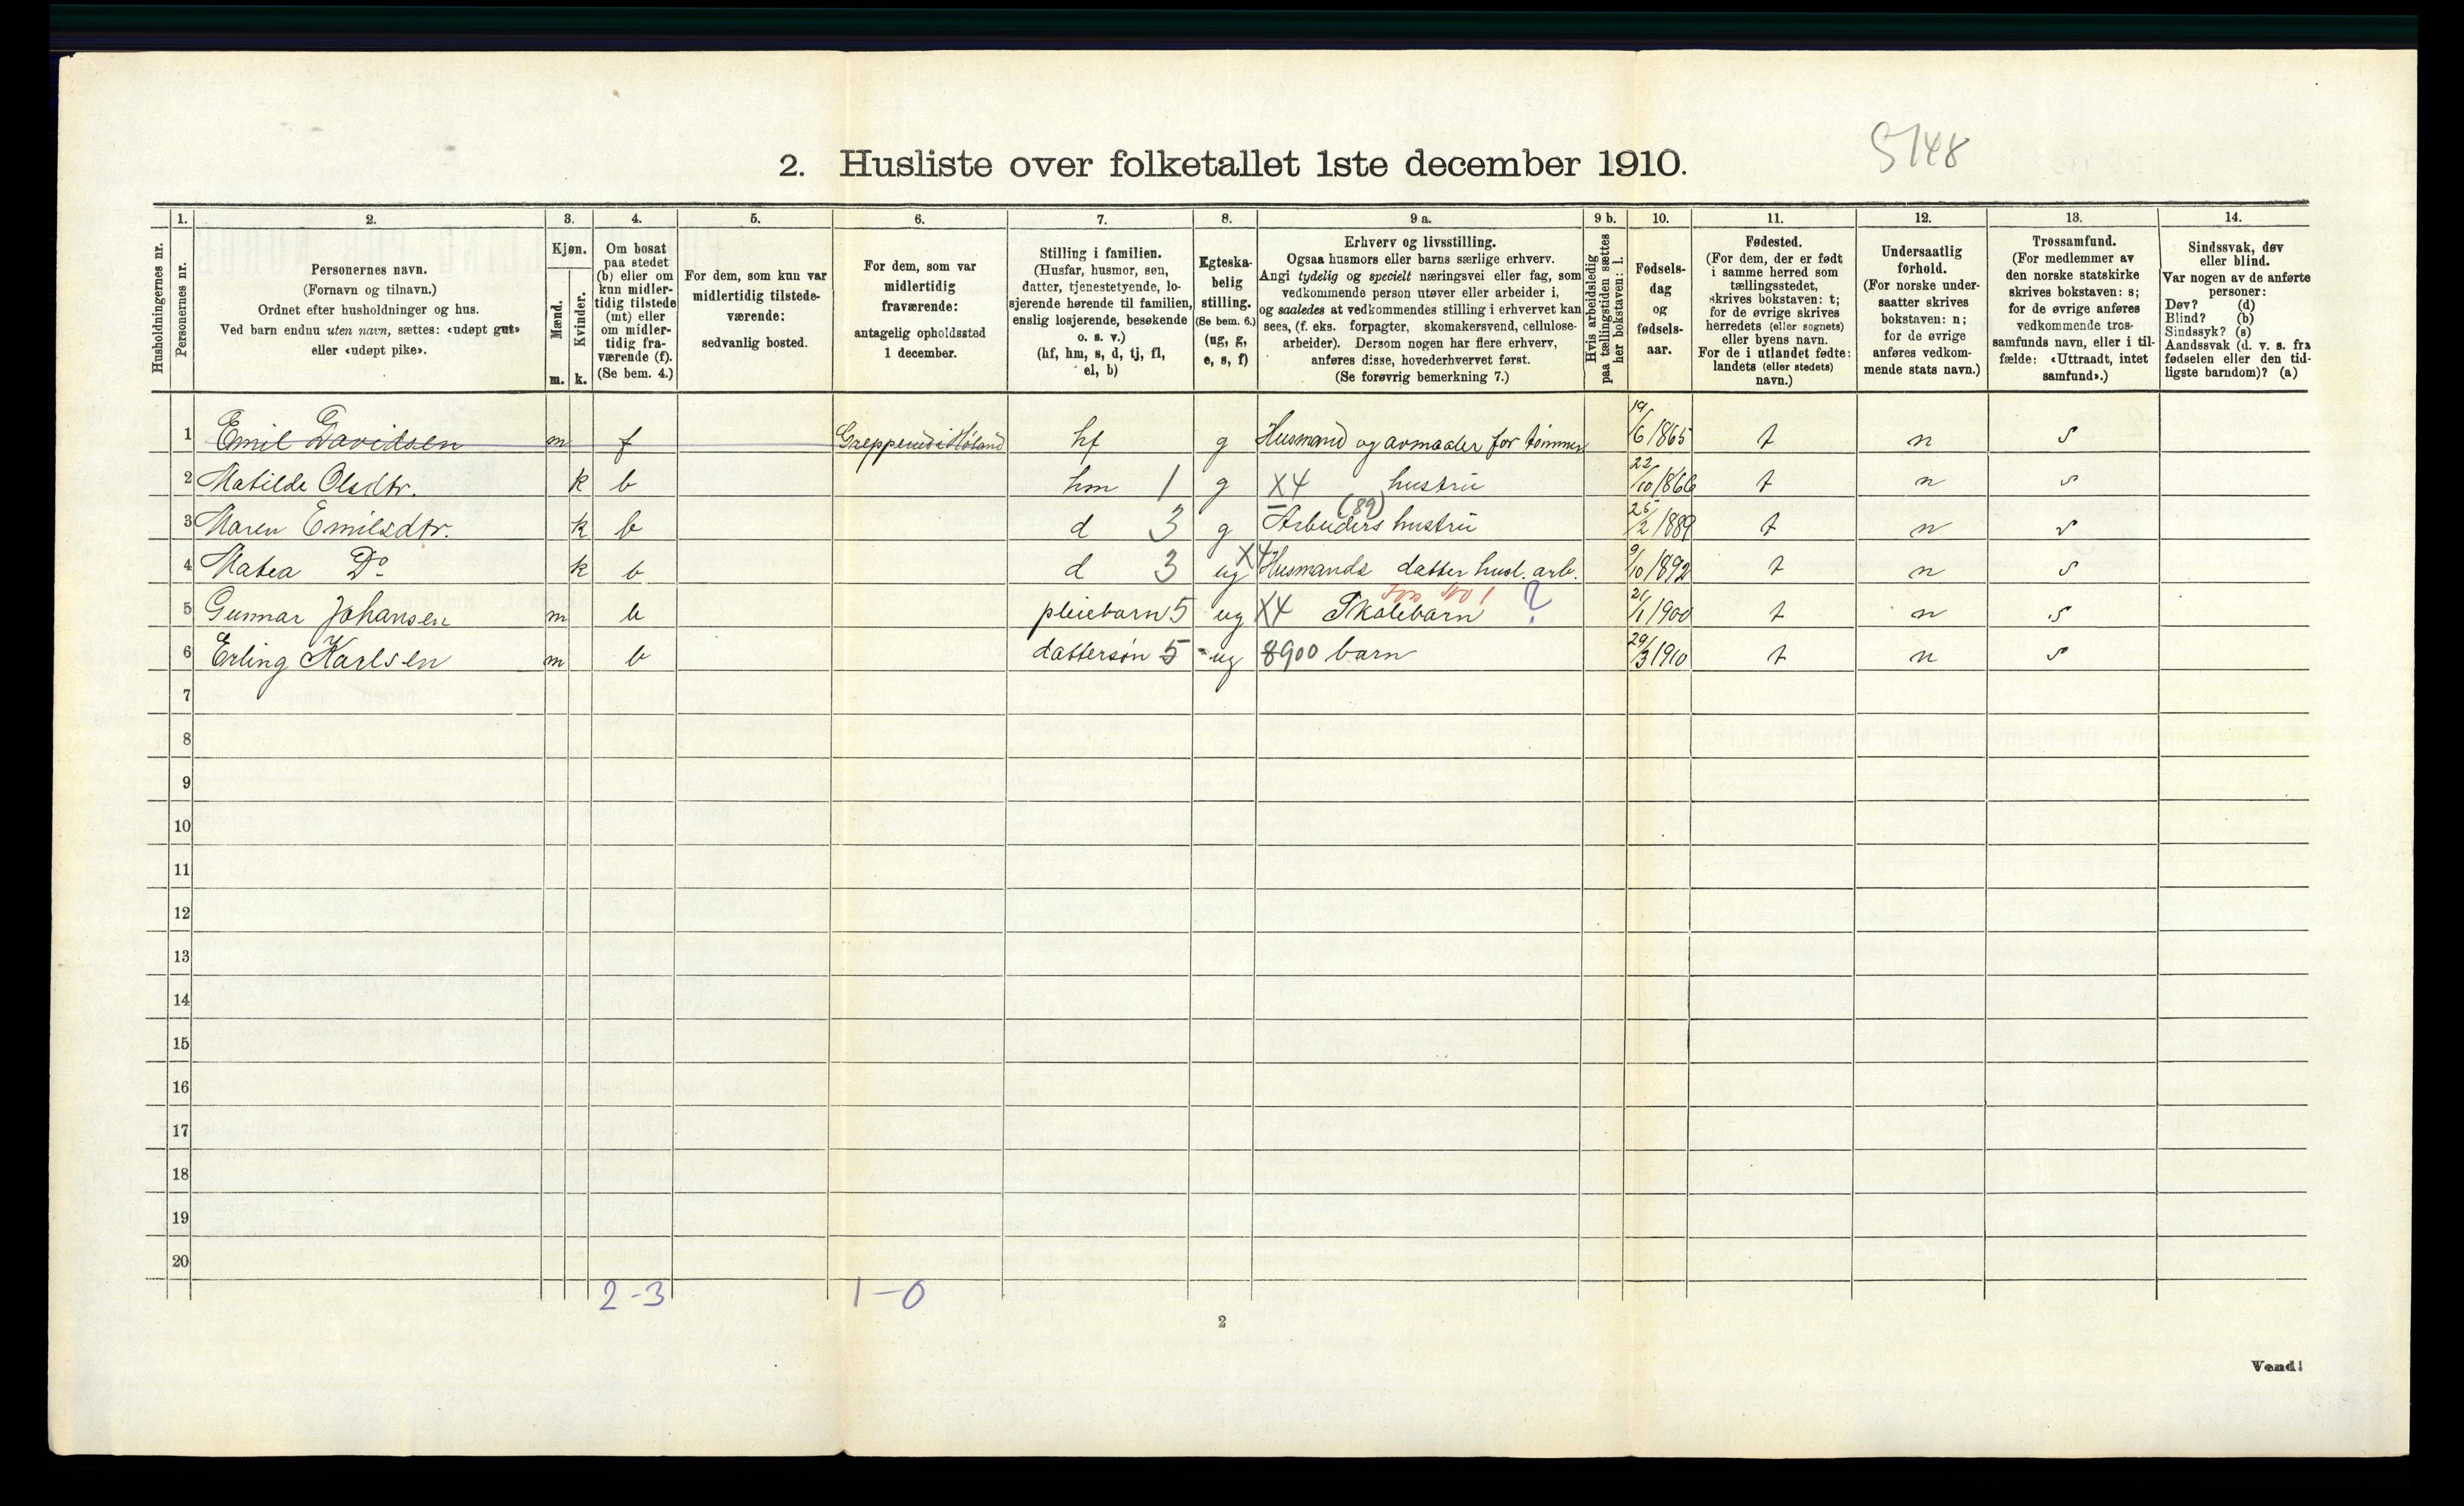 5148
2. Husliste over folketallet 1ste december 1910.
Husholdningernes nr.
1.
Personernes nr.
2.
Personernes navn.
(Fornavn og tilnavn.)
Ordnet efter husholdninger og hus.
Ved barn endnu uten navn, sættes: «udøpt gut»
eller «udøpt pike».
3.
Kjøn.
Mænd.
m.
Kvinder.
k.
4.
Om bosat
paa stedet
(b) eller om
kun midler-
tidig tilstede
(mt) eller
om midler-
tidig fra-
værende (f).
(Se bem. 4.)
5.
For dem, som kun var
midlertidig tilstede-
værende:
sedvanlig bosted.
6.
For dem, som var
midlertidig
fraværende:
antagelig opholdssted
1 december.
7.
Stilling i familien.
(Husfar, husmor, søn,
datter, tjenestetyende, lo-
sjerende hørende til familien,
enslig losjerende, besøkende
o. s. v.)
(hf, hm, s, d, tj, fl,
el, b)
8.
Egteska-
belig
stilling.
(Se bem. 6.)
(ug, g,
e, s, f)
9 a.
Erhverv og livsstilling.
Ogsaa husmors eller barns særlige erhverv.
Angi tydelig og specielt næringsvei eller fag, som
vedkommende person utøver eller arbeider i,
og saaledes at vedkommendes stilling i erhvervet kan
sees, (f. eks. forpagter, skomakersvend, cellulose-
arbeider). Dersom nogen har flere erhverv,
anføres disse, hovederhvervet først.
(Se forøvrig bemerkning 7.)
9 b.
Hvis arbeidsledig
paa tællingstiden sættes
her bokstaven: l.
10.
Fødsels-
dag
og
fødsels-
aar.
11.
Fødested.
(For dem, der er født
i samme herred som
tællingsstedet,
skrives bokstaven: t;
for de øvrige skrives
herredets (eller sognets)
eller byens navn.
For de i utlandet fødte:
landets (eller stedets)
navn.)
12.
Undersaatlig
forhold.
(For norske under-
saatter skrives
bokstaven: n;
for de øvrige
anføres vedkom-
mende stats navn.)
13.
Trossamfund.
(For medlemmer av
den norske statskirke
skrives bokstaven: s;
for de øvrige anføres
vedkommende tros-
samfunds navn, eller i til-
fælde: «Uttraadt, intet
samfund».)
14.
Sindssvak, døv
eller blind.
Var nogen av de anførte
personer:
Døv? (d)
Blind? (b)
Sindssyk? (s)
Aandssvak (d. v. s. fra
fødselen eller den tid-
ligste barndom)? (a)
1 Emil Davidsen m f Grepperud i Høland hf g Husmand og avmaaler for tømmer 19/6 1865 t n s
2 Matilde Olsdtr. k b hm 1 g X4 hustru 22/10 1866 t n s
3 Maren Emilsdtr. k b d 3 g Arbeiders (89) hustru 25/2 1889 t n s
4 Matea Do k b d 3 ug X4 Husmands datter husl. arb. 9/10 1892 t n s
5 Gunnar Johansen m b pleiebarn 5 ug X4 Skolebarn ? 21/1 1900 t n s
6 Erling Karlsen m b dattersøn 5 ug 8900 barn 29/3 1910 t n s
7
8
9
10
11
12
13
14
15
16
17
18
19
20
2-3 1-0
2
Vend!